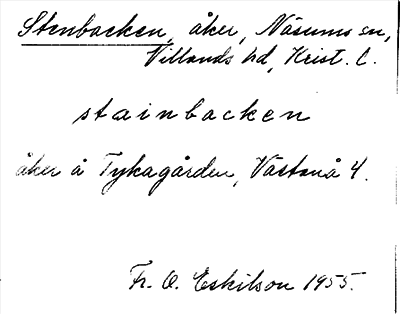 Stenbacken, åker, Näsums sn,
Villands hd, Krist. l.
stainbacken
åker å Tykagården, Västanå 4.
Fr. O. Eskilson 1955.